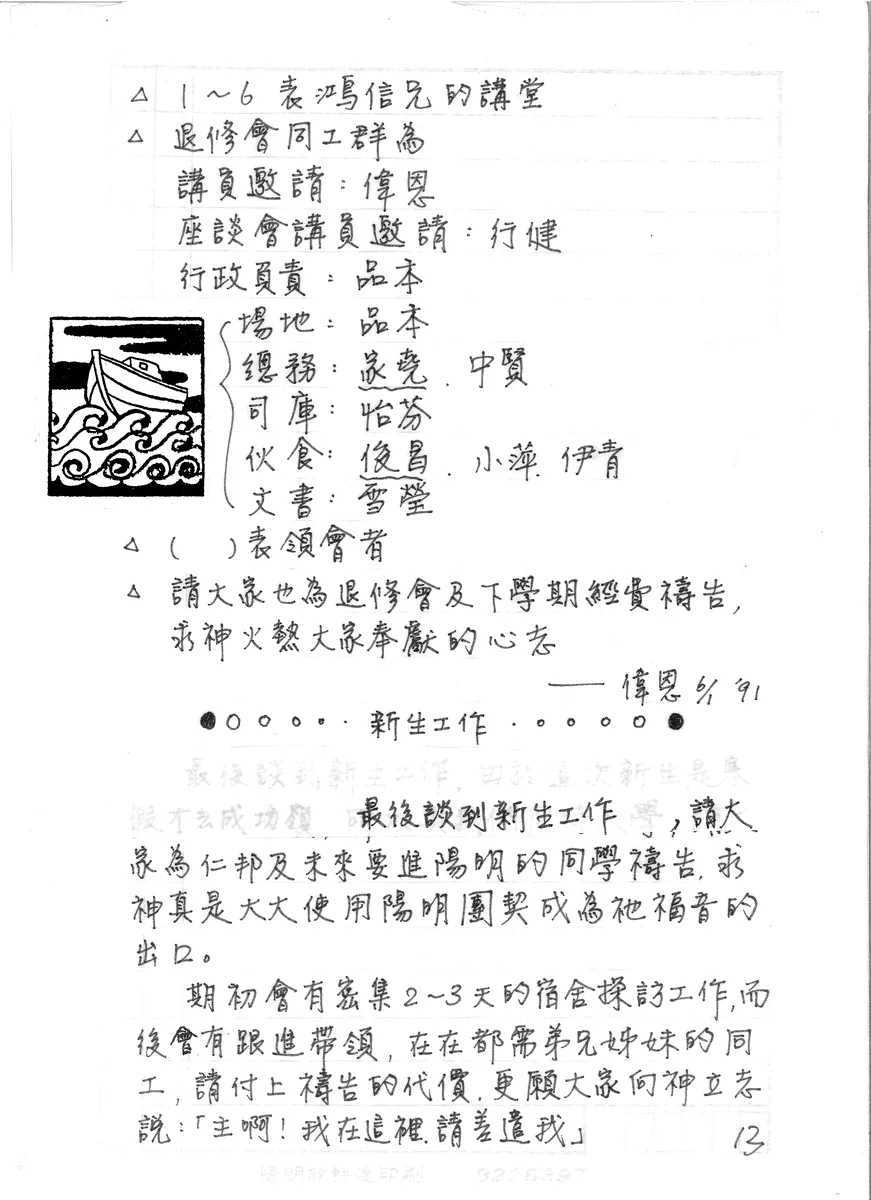 △ 1～6 表鴻信兄的講堂
△ 退修會同工群為
講員邀請：偉恩
座談會講員邀請：行健
行政負責：品本
場地：品本
總務：家堯、中賢
司庫：怡芬
伙食：俊昌、小萍、伊青
文書：雪瑩
△ (　)表領會者
△ 請大家也為退修會及下學期經費禱告,
求神火熱大家奉獻的心志
—— 偉恩 6/1 '91
●○○○○∙∙ 新生工作 ∙∘○○○○●
最後談到新生工作，請大
家為仁邦及未來要進陽明的同學禱告, 求
神真是大大使用陽明團契成為祂福音的
出口。
期初會有密集2～3天的宿舍探訪工作,而
後會有跟進帶領, 在在都需弟兄姊妹的同
工, 請付上禱告的代價. 更願大家向神立志
說：「主啊！我在這裡.請差遣我」
13